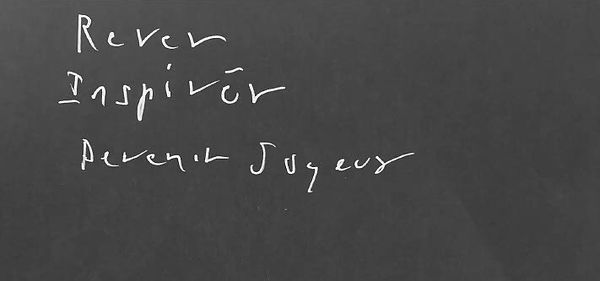 Rever
Inspirōr
Devenir Joyeux